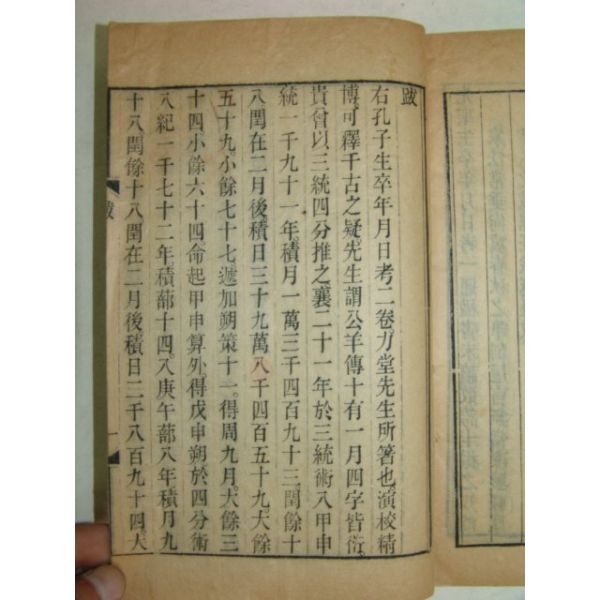 跋
右孔子生卒年月日考二卷力堂先生所箸也演校精
博可釋千古之疑先生謂公羊傳十有一月四字皆衍
貴曾以三統四分推之襄二十一年於三統術入甲申
統一千九十一年積月一萬三千四百九十三閏餘十
八閏在二月後積日三十九萬八千四百五十九大餘
五十九小餘七十七遞加朔策十一得周九月大餘三
十四小餘六十四命起甲申算外得戊申朔於四分術
入紀一千七十二年積蔀十四入庚午蔀八年積月九
十八閏餘十八閏在二月後積日二千八百九十四大
跋
一